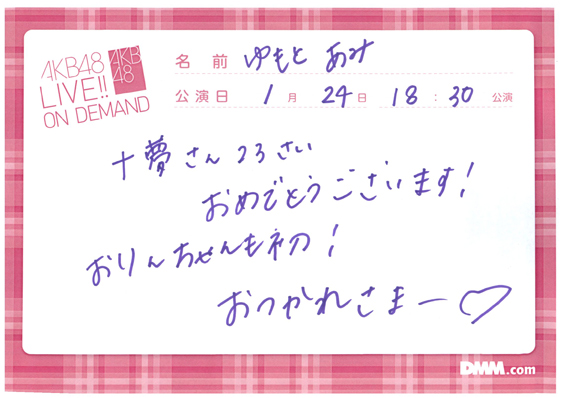 AKB48
LIVE!!
ON DEMAND
AKB
48
名前 ゆもと あみ
公演日 1月 24日 18:30 公演
十夢さん 23さい
おめでとうございます!
おりんちゃんも初!
おつかれさまー♡
DMM.com